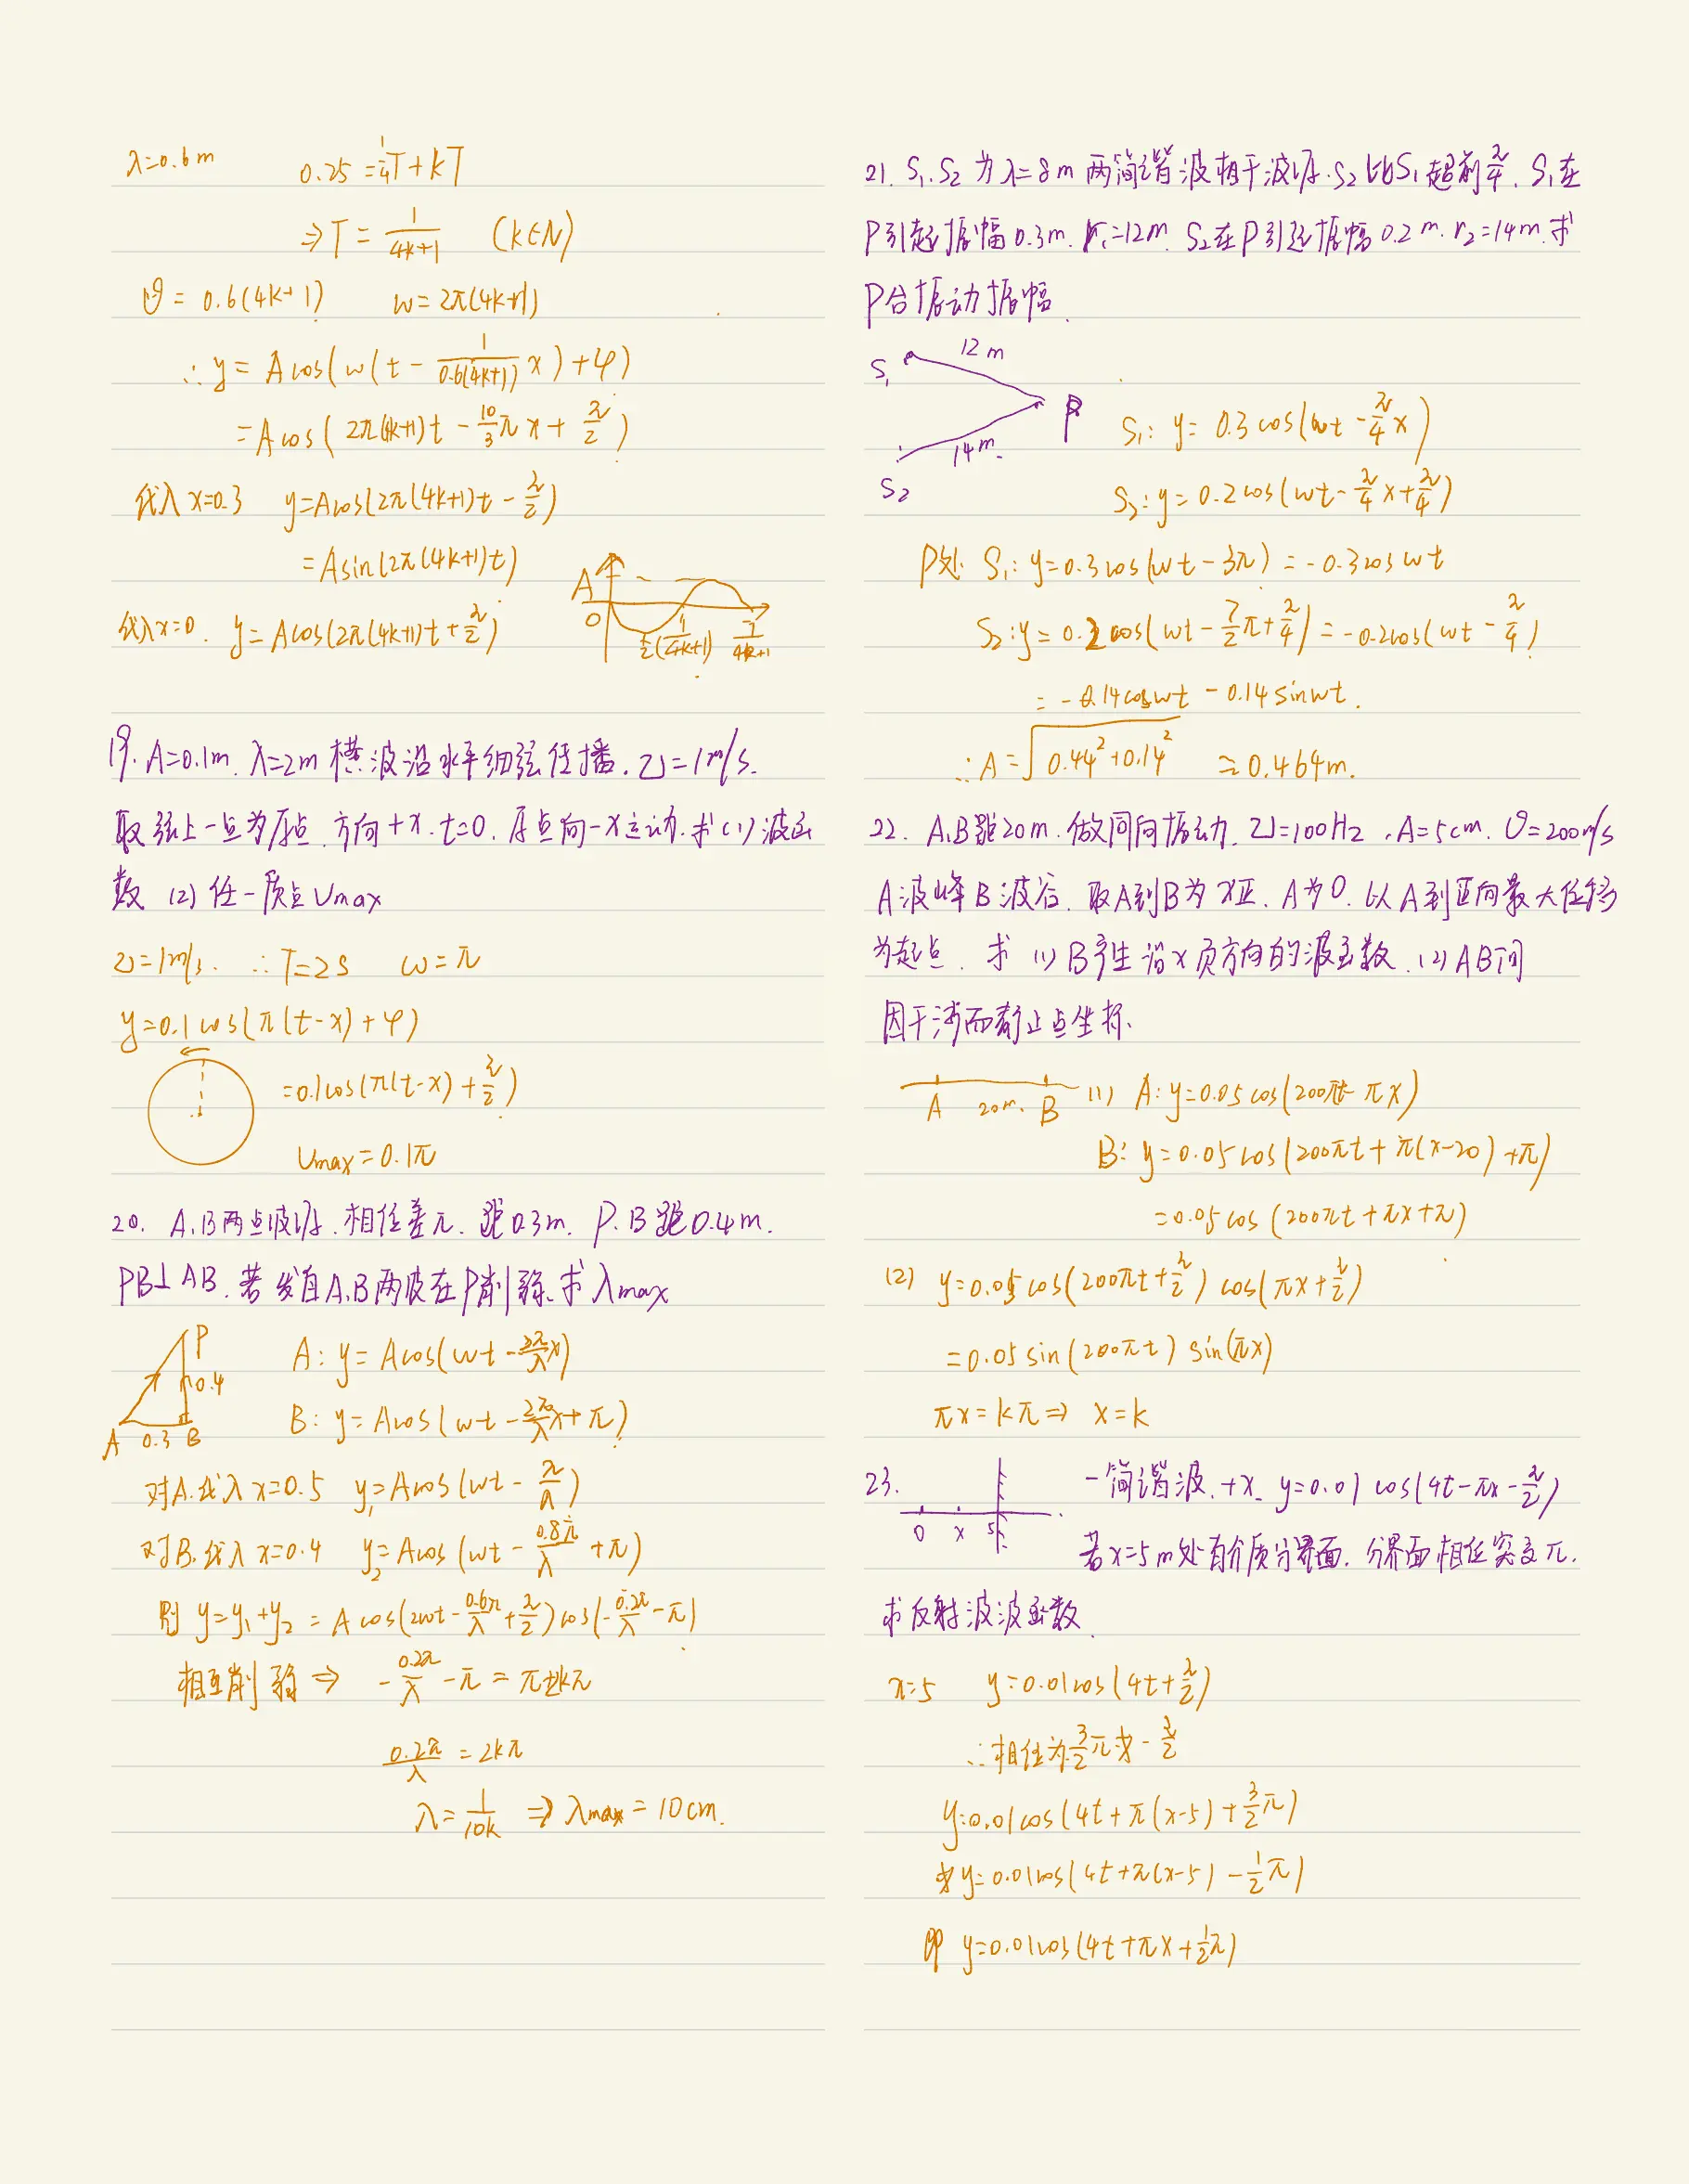 λ=0.6m 0.25 = 1/4 T + kT
⇒ T = 1/(4k+1) (k∈N)
v = 0.6(4k+1) w = 2π(4k+1)
∴ y = Acos(w(t - 1/(0.6(4k+1)) x) + φ)
= Acos(2π(4k+1)t - 10/3 πx + π/2)
代入 x=0.3 y=Acos(2π(4k+1)t - π/2)
= Asin(2π(4k+1)t)
代入x=0. y = Acos(2π(4k+1)t + π/2)
A
O
1/2(1/(4k+1)) 1/(4k+1)
19. A=0.1m. λ=2m 横波沿水平细弦传播. v=1m/s.
取弦上一点为原点. 方向+x. t=0. 原点向-x运动. 求(1)波函
数 (2) 任一质点 Umax
v=1m/s. ∴T=2s ω=π
y=0.1cos(π(t-x)+φ)
=0.1cos(π(t-x)+π/2)
Umax=0.1π
20. A.B两点波源. 相位差π. 距0.3m. P.B距0.4m.
PB⊥AB. 若发自A.B两波在P削弱. 求λmax
P
0.4
A 0.3 B
A: y = Acos(wt - 2π/λ x)
B: y = Acos(wt - 2π/λ x + π)
对A.代入x=0.5 y₁=Acos(wt - π/λ)
对B.代入x=0.4 y₂=Acos(wt - 0.8π/λ + π)
则 y=y₁+y₂ = A cos(2wt - 0.6π/λ + π/2)cos(-0.2π/λ - π)
相互削弱 ⇒ -0.2π/λ - π = π±kπ
0.2π/λ = 2kπ
λ = 1/10k ⇒ λmax = 10cm.
21. S₁.S₂ 为λ=8m 两简谐波相干波源. S₂比S₁超前π/4. S₁在
P引起振幅0.3m. r₁=12m. S₂在P引起振幅0.2m. r₂=14m. 求
P合振动振幅.
S₁ 12m
P
14m.
S₂
S₁: y = 0.3cos(wt - π/4 x)
S₂: y = 0.2cos(wt - π/4 x + π/4)
P处: S₁: y=0.3cos(wt-3π) = -0.3coswt
S₂: y = 0.2cos(wt - 7/2 π + π/4) = -0.2cos(wt - π/4)
= -0.14coswt - 0.14sinwt.
∴ A = √(0.44²+0.14²) ≃ 0.464m.
22. A.B距20m. 做同向振动. ν=100Hz. A=5cm. v=200m/s
A波峰B波谷. 取A到B为x正. A为0. 以A到正向最大位移
为起点. 求 (1) B产生沿x负方向的波函数. (2) AB间
因干涉而静止点坐标.
A 20m. B
(1) A: y=0.05cos(200πt-πx)
B: y = 0.05cos(200πt + π(x-20) + π)
=0.05cos(200πt+πx+π)
(2) y=0.05cos(200πt+π/2)cos(πx+π/2)
=0.05sin(200πt)sin(πx)
πx=kπ ⇒ x=k
23. 一简谐波. +x. y=0.01cos(4t-πx-π/2)
0 x 5
若x=5m处有介质分界面. 分界面相位突变π.
求反射波波函数.
x=5 y=0.01cos(4t+π/2)
∴相位为3/2π或-π/2
y=0.01cos(4t+π(x-5)+3/2π)
或y=0.01cos(4t+π(x-5)-1/2π)
即 y=0.01cos(4t+πx+1/2π)